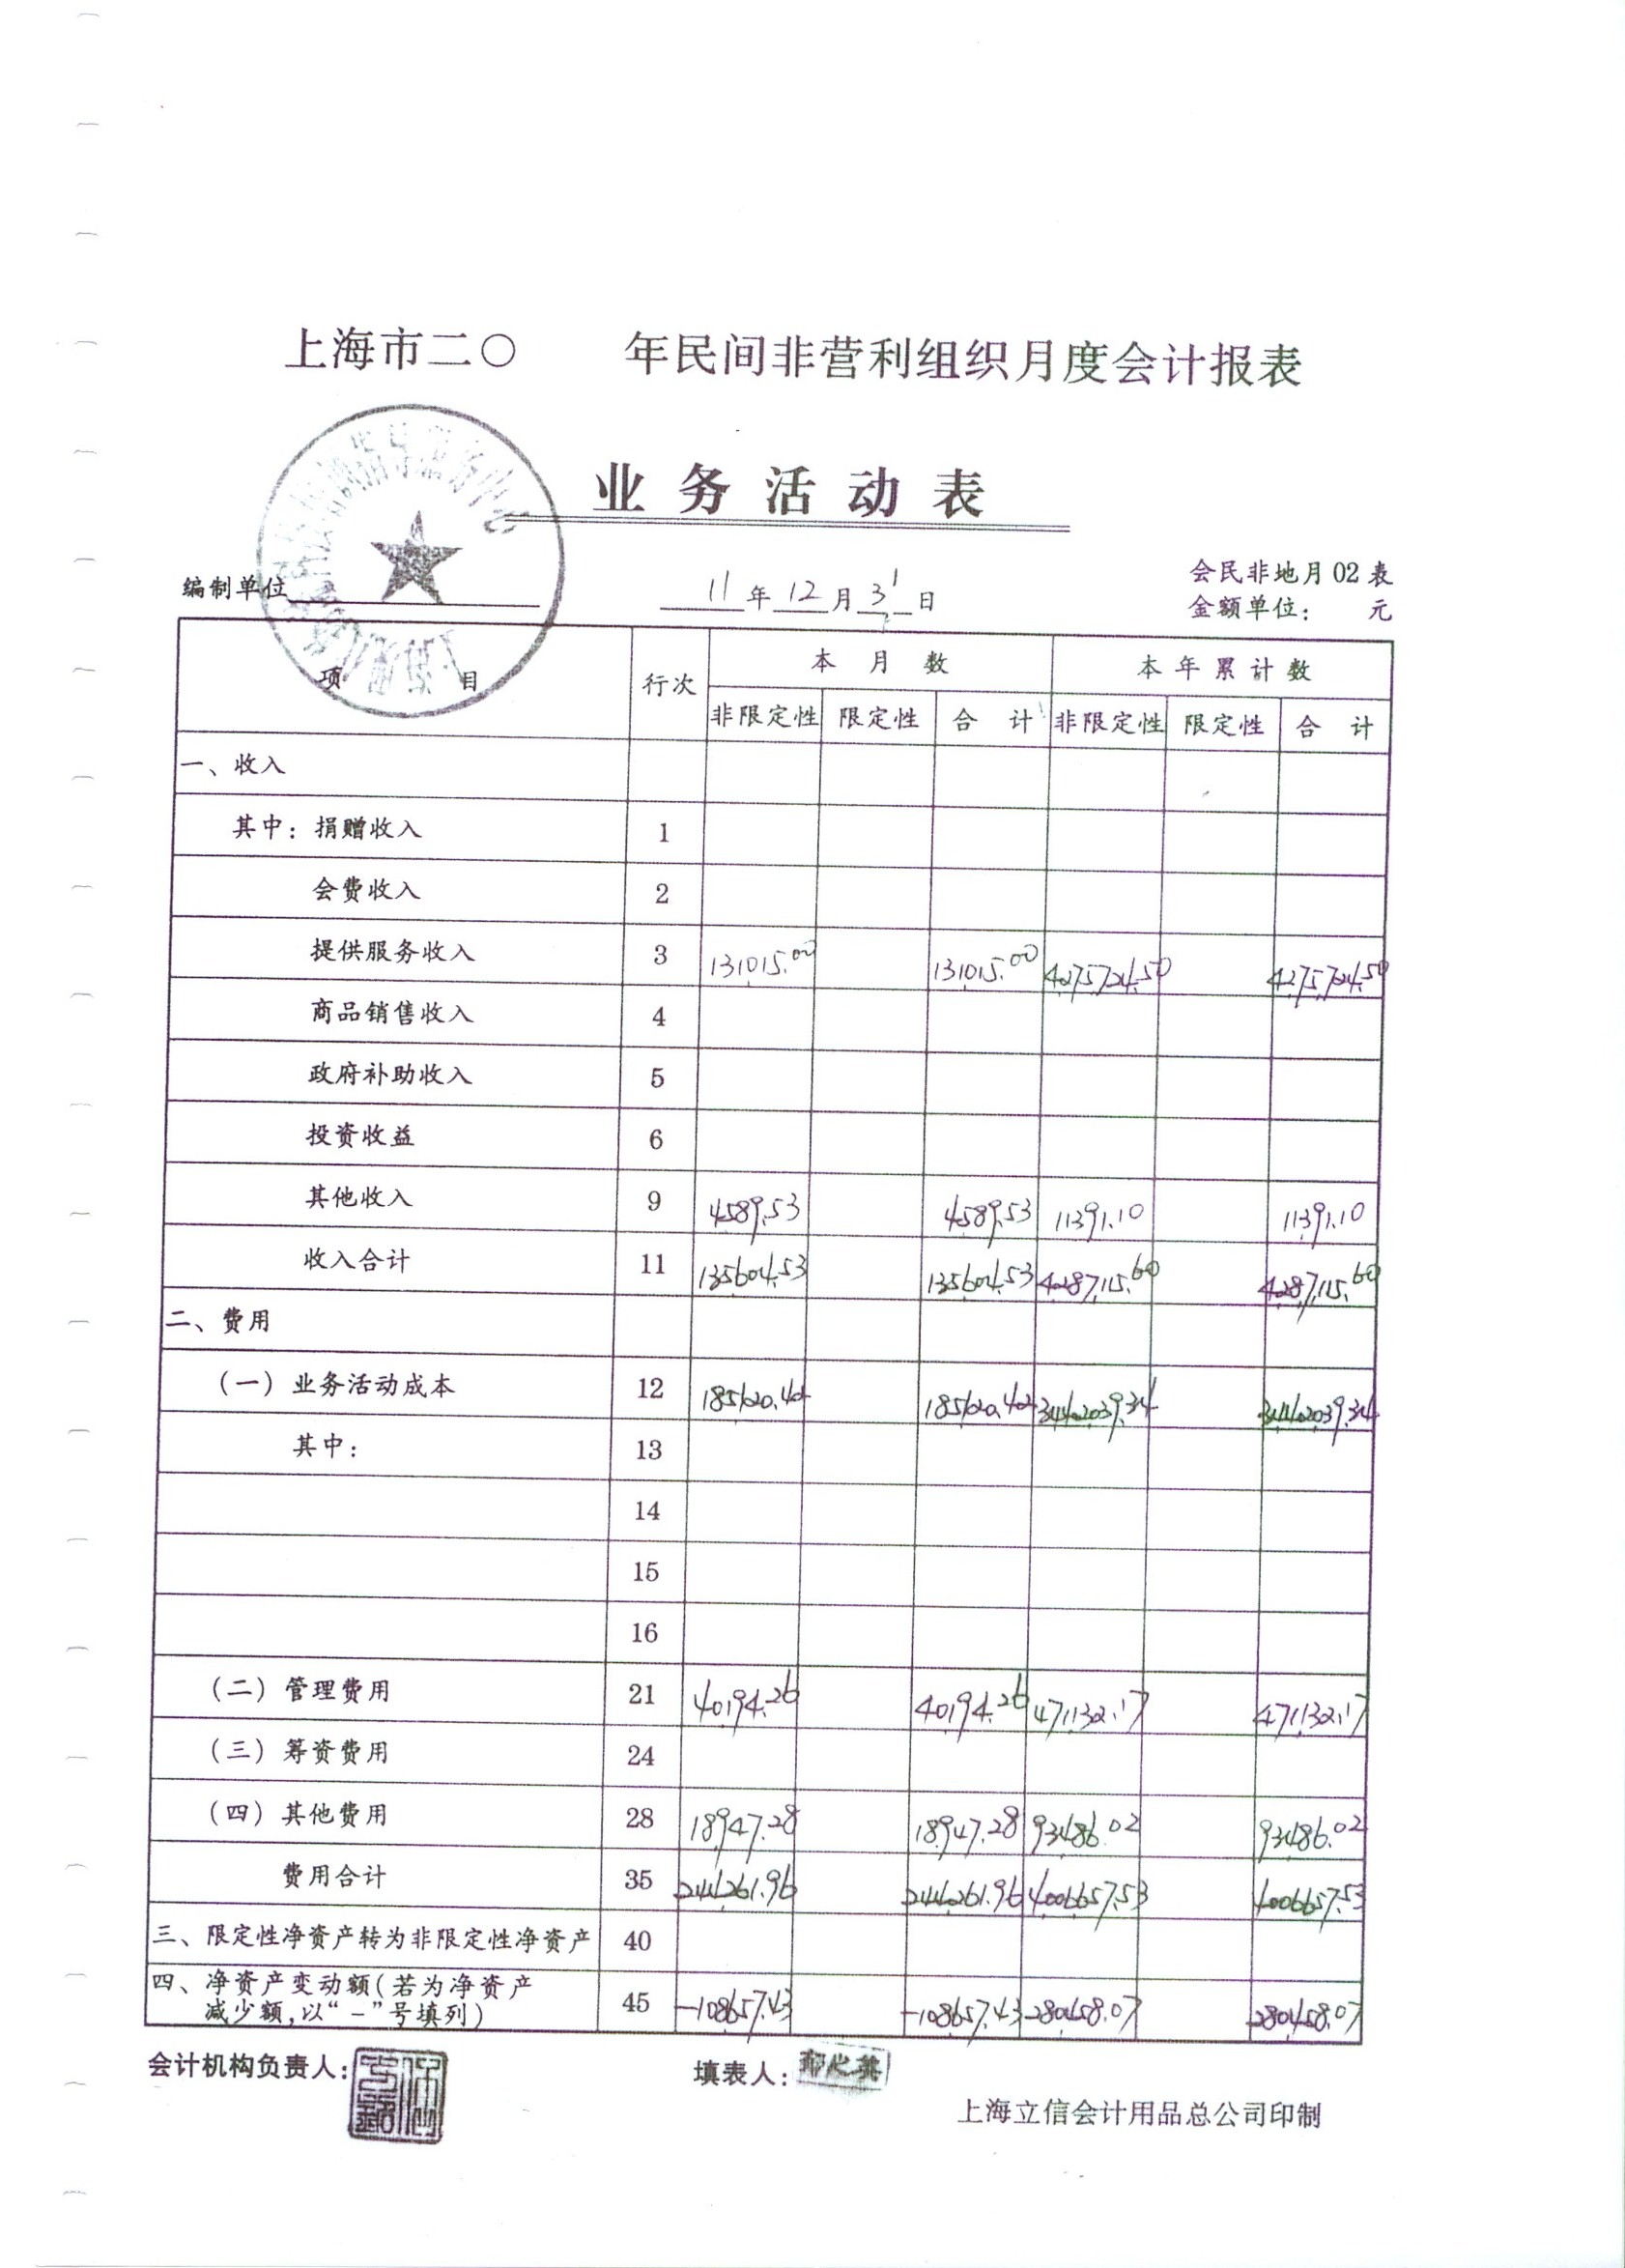 上海市二〇 年民间非营利组织月度会计报表
业务活动表
会民非地月 02 表
编制单位 11 年 12 月 31 日
金额单位: 元
项 目 行次 本月数 本年累计数
非限定性 限定性 合 计 非限定性 限定性 合 计
一、收入
其中: 捐赠收入 1
会费收入 2
提供服务收入 3 131015.00 131015.00 4275724.50 4275724.50
商品销售收入 4
政府补助收入 5
投资收益 6
其他收入 9 4589.53 4589.53 11391.10 11391.10
收入合计 11 135604.53 135604.53 4287115.60 4287115.60
二、费用
(一) 业务活动成本 12 185120.42 185120.42 3442039.34 3442039.34
其中: 13
14
15
16
(二) 管理费用 21 40194.26 40194.26 471132.17 471132.17
(三) 筹资费用 24
(四) 其他费用 28 18947.28 18947.28 93486.02 93486.02
费用合计 35 244261.96 244261.96 4006657.53 4006657.53
三、限定性净资产转为非限定性净资产 40
四、净资产变动额(若为净资产
减少额,以“－”号填列) 45 -108657.43 -108657.43 280458.07 280458.07
会计机构负责人: 填表人:
上海立信会计用品总公司印制